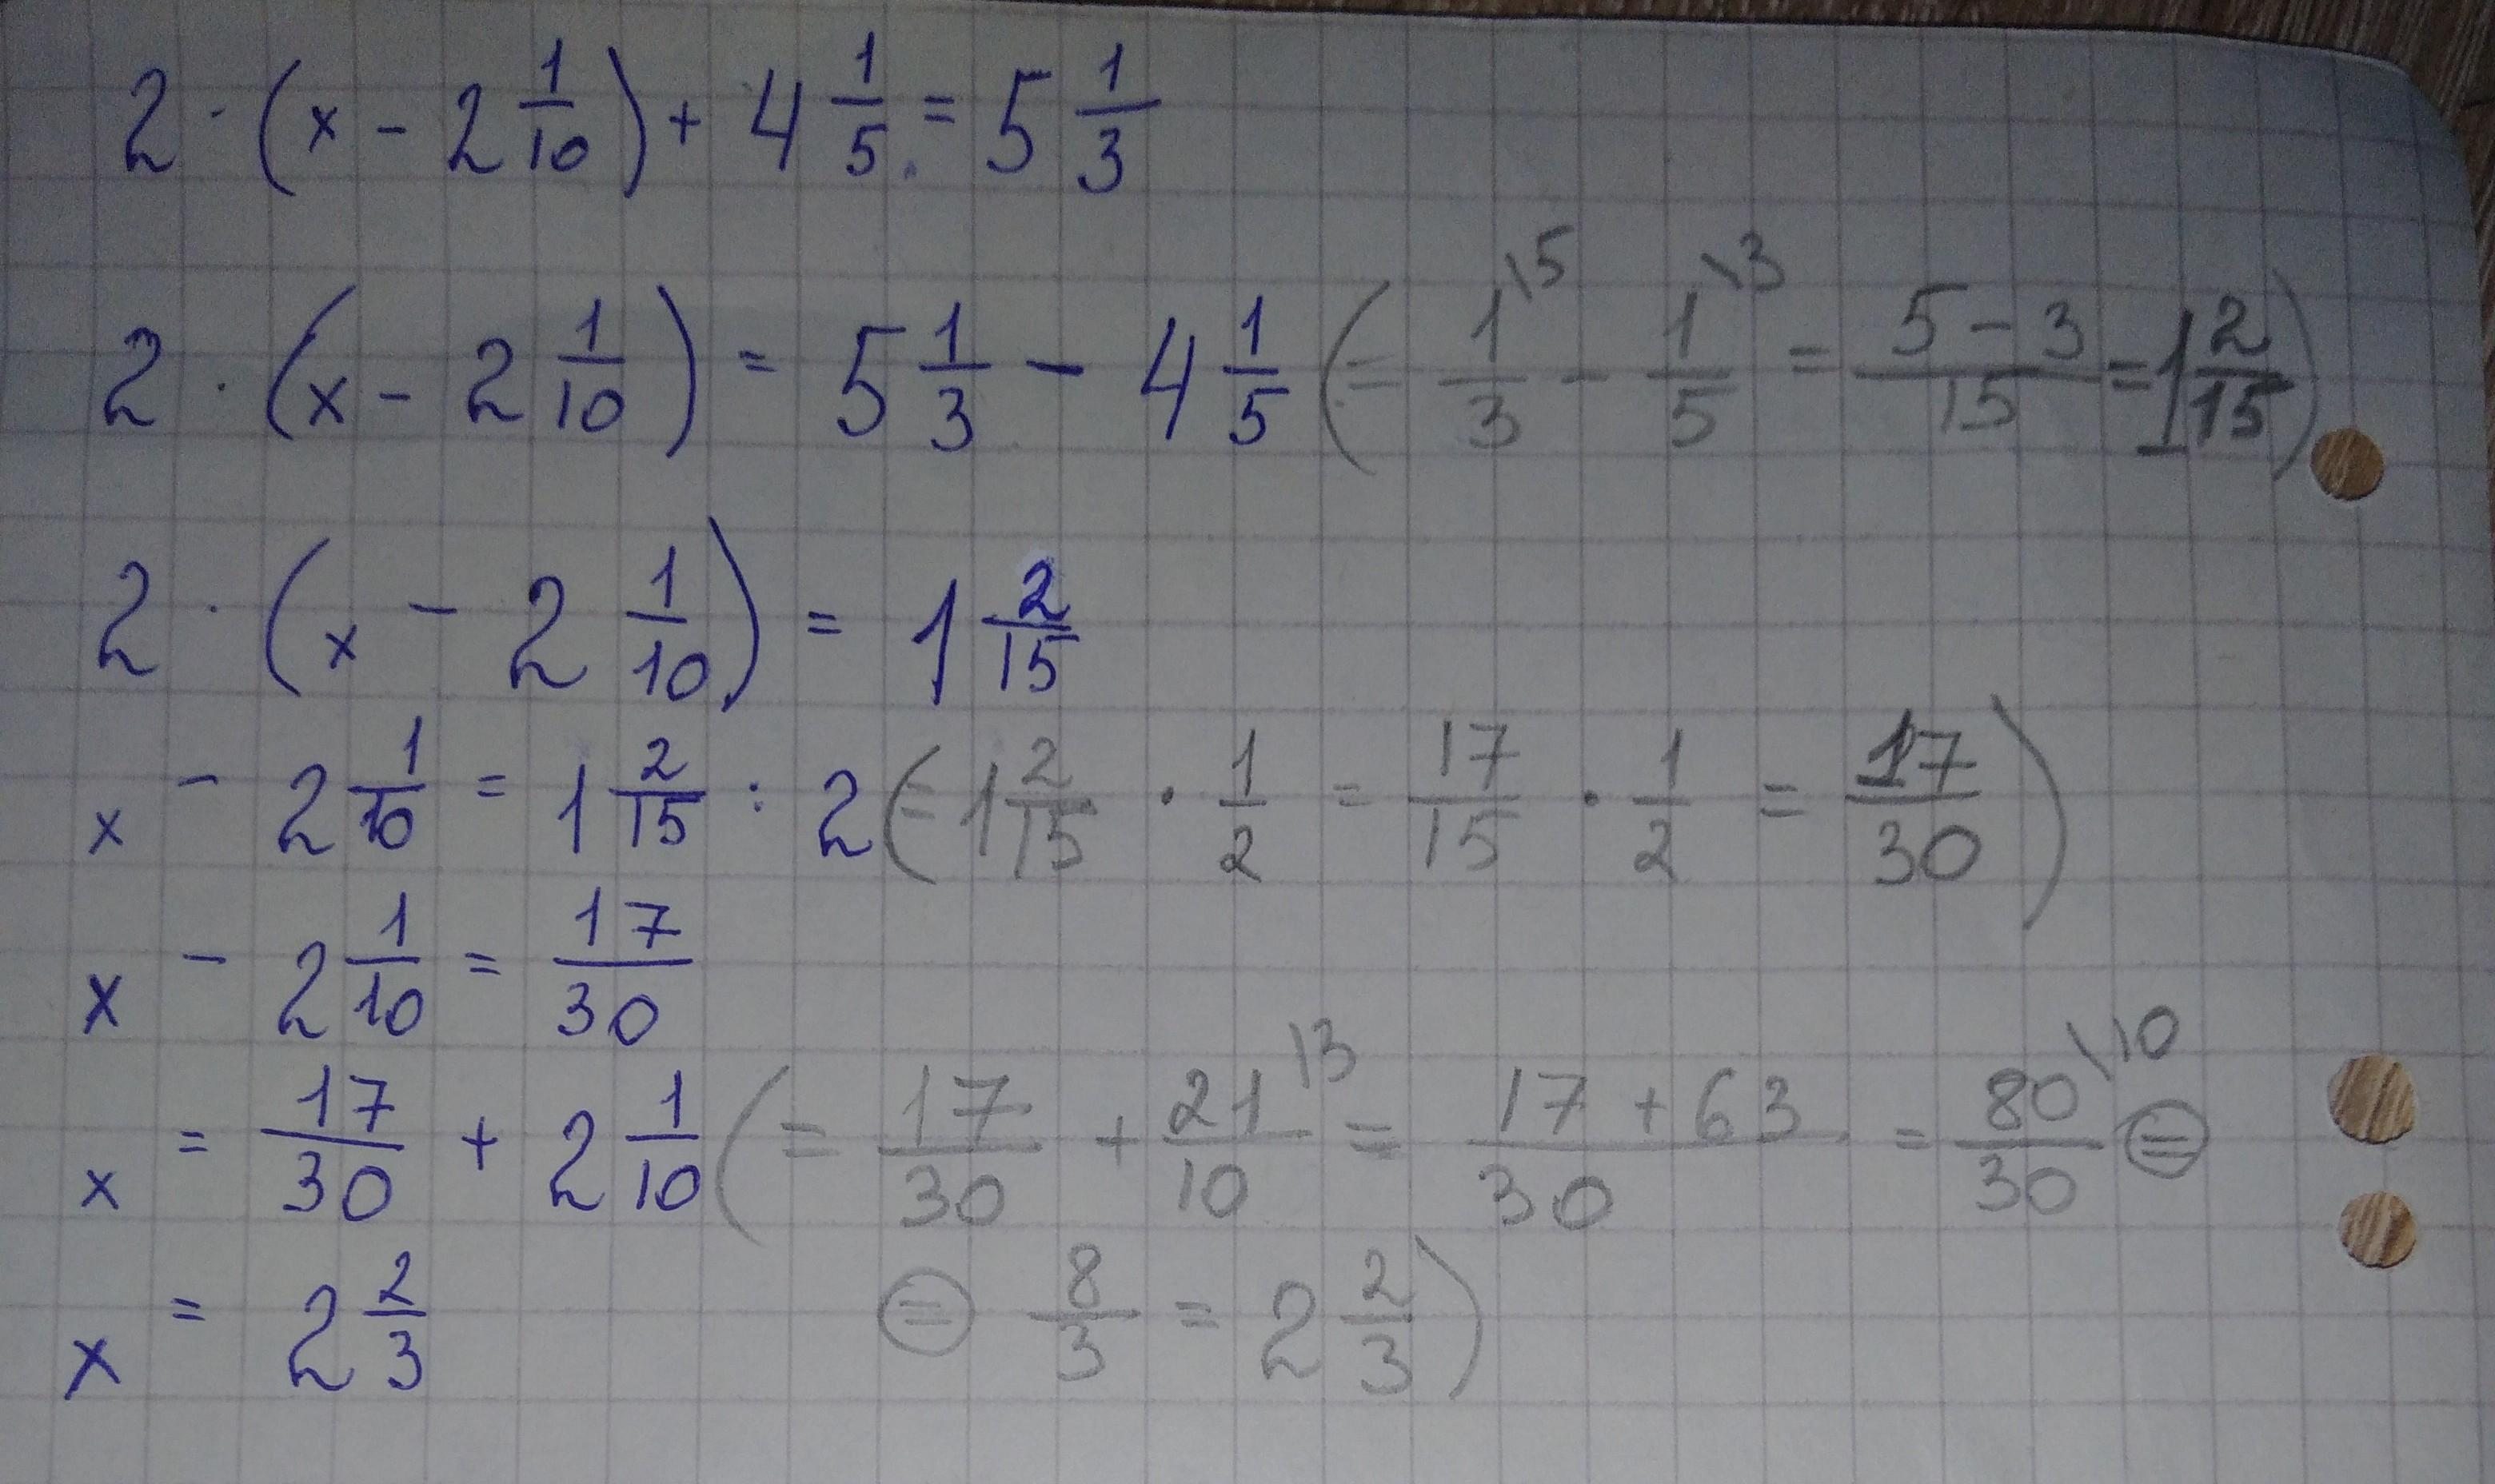 2 · (x - 2 1/10) + 4 1/5 = 5 1/3
2 · (x - 2 1/10) = 5 1/3 - 4 1/5 (= 1\5/3 - 1\3/5 = 5-3/15 = 1 2/15)
2 · (x - 2 1/10) = 1 2/15
x - 2 1/10 = 1 2/15 : 2 (= 1 2/15 · 1/2 = 17/15 · 1/2 = 17/30)
x - 2 1/10 = 17/30
x = 17/30 + 2 1/10 (= 17/30 + 21\3/10 = 17+63/30 = 80\10/30 =
x = 2 2/3 = 8/3 = 2 2/3)